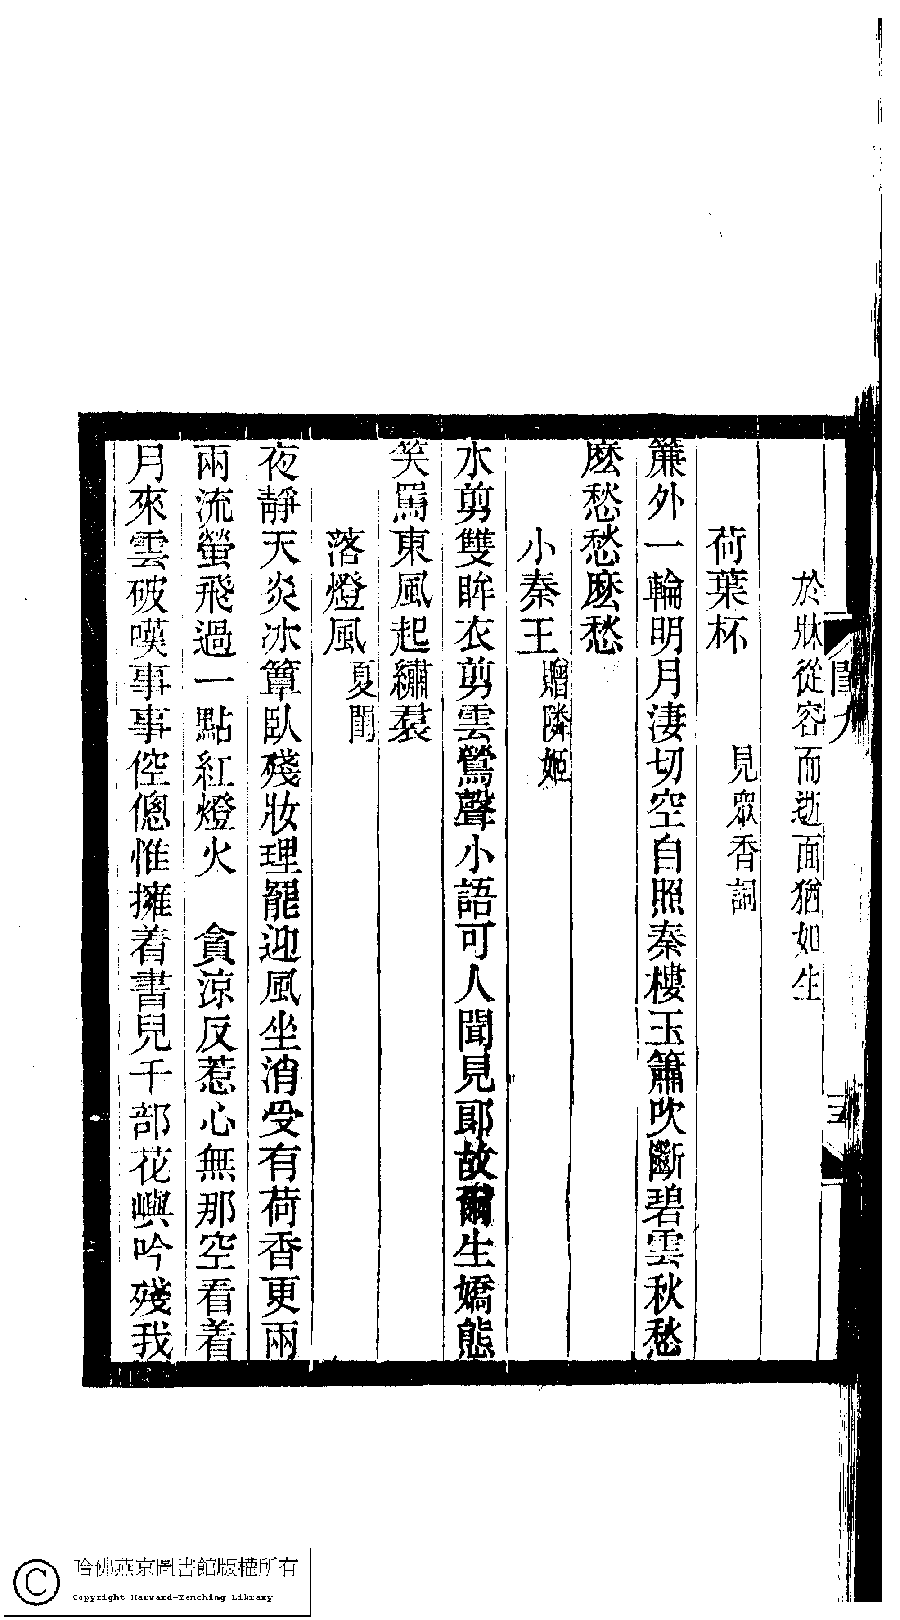 於牀從容而逝面猶如生
荷葉杯 見眾香詞
簾外一輪明月淒切空自照秦樓玉簫吹斷碧雲秋愁
麽愁愁麽愁
小秦王 贈隣姬
水剪雙眸衣剪雲鶯聲小語可人聞見郎故爾生嬌態
笑罵東風起繡羣
落燈風 夏閨
夜靜天炎冰簟臥殘妝理罷迎風坐消受有荷香更兩
兩流螢飛過一點紅燈火 貪涼反惹心無那空看着
月來雲破嘆事事倥傯惟擁着書兒千部花嶼吟殘我
哈佛燕京圖書館版權所有
Copyright Harvard-Yenching Library